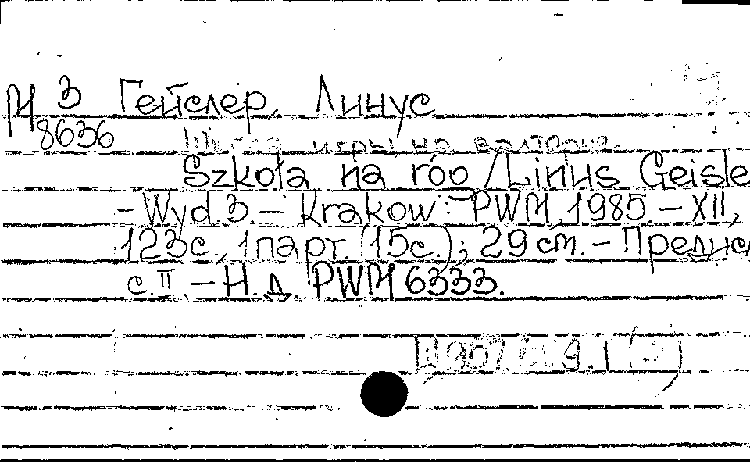 М 3 Гейслер, Линус
8636
Школа игры на валторне.
Szkoła na róg / Linus Geisle
- Wyd. 3. - Krakow: PWM, 1985. - XII,
123 с., 1 парт. (15 с.); 29 cm. -
с. II. - Н. д. PWM 6333.